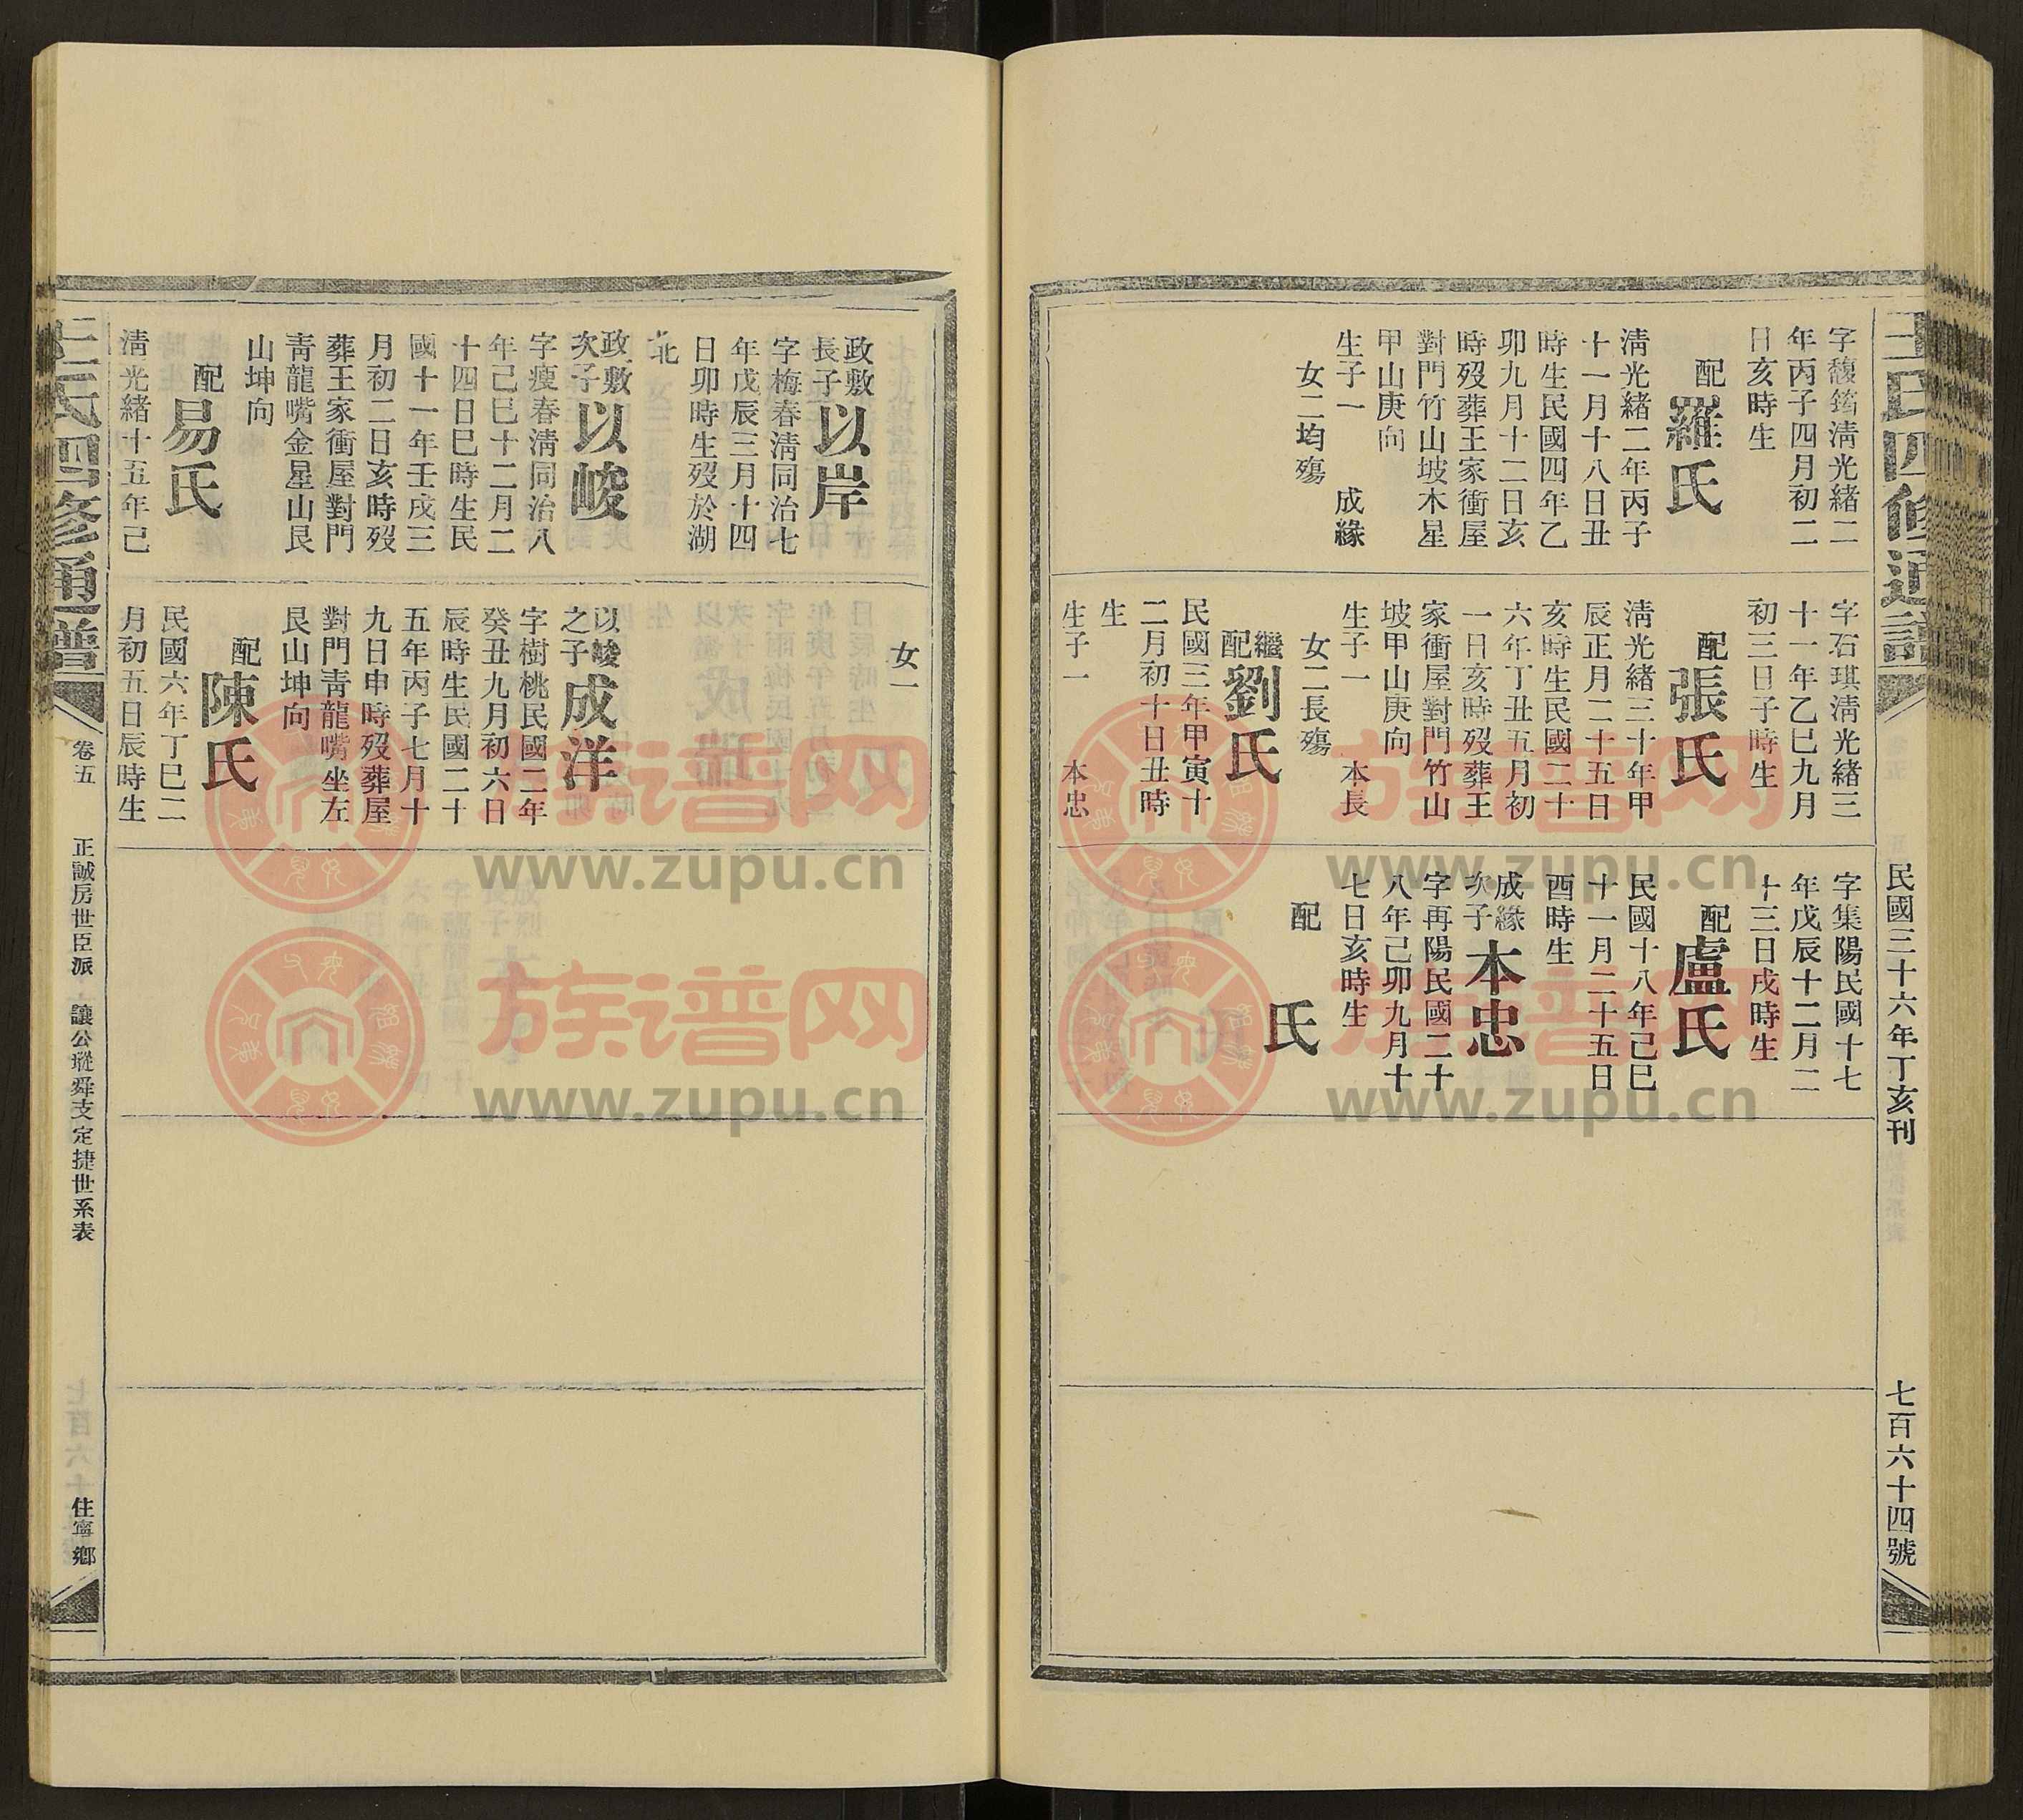 王氏四修通譜
民國三十六年丁亥刊
七百六十四號
字馥筠淸光緒二
年丙子四月初二
日亥時生
配羅氏
淸光緒二年丙子
十一月十八日丑
時生民國四年乙
卯九月十二日亥
時歿葬王家衝屋
對門竹山坡木星
甲山庚向
生子一 成緣
女二均殤
字石琪淸光緒三
十一年乙巳九月
初三日子時生
配張氏
淸光緒三十年甲
辰正月二十五日
亥時生民國二十
六年丁丑五月初
一日亥時歿葬王
家衝屋對門竹山
坡甲山庚向
生子一 本長
女二長殤
繼配劉氏
民國三年甲寅十
二月初十日丑時
生
生子一 本忠
字集陽民國十七
年戊辰十二月二
十三日戌時生
配盧氏
民國十八年己巳
十一月二十五日
酉時生
成緣次子本忠
字再陽民國二十
八年己卯九月十
七日亥時生
配 氏
政敷長子以岸
字梅春淸同治七
年戊辰三月十四
日卯時生歿於湖
北
政敷次子以峻
字瘦春淸同治八
年己巳十二月二
十四日巳時生民
國十一年壬戌三
月初二日亥時歿
葬王家衝屋對門
靑龍嘴金星山艮
山坤向
配易氏
淸光緒十五年己
女一
以峻之子成洋
字樹桃民國二年
癸丑九月初六日
辰時生民國二十
五年丙子七月十
九日申時歿葬屋
對門靑龍嘴坐左
艮山坤向
配陳氏
民國六年丁巳二
月初五日辰時生
王氏四修通譜
卷五
正誠房世臣派 讓公瑽舜支定捷世系表
住寧鄉
族谱网
www.zupu.cn
族谱网
www.zupu.cn
族谱网
www.zupu.cn
族谱网
www.zupu.cn